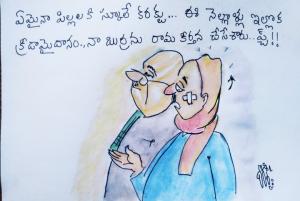 ఏమైనా పిల్లలకి స్కూలే కరక్టు... ఈ నెల్లాళ్లు ఇల్లొక
క్రీడామైదానం., నా బుర్రను రామ కీర్తన చేసేశారు.. ప్చ్!!